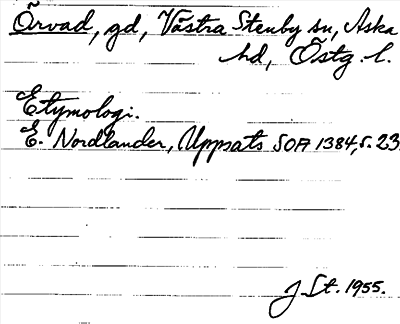 Örvad, gd, Västra Stenby sn, Aska
hd, Östg. l.
Etymologi.
E. Nordlander, Uppsats SOA 1384, s. 23.
J St. 1955.